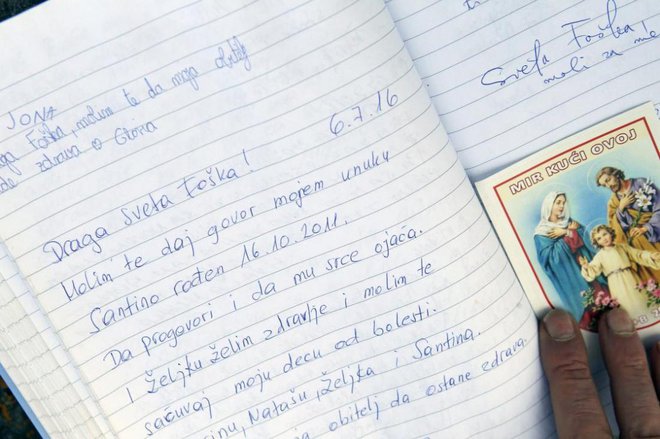 JONA
Foška, molim te da moja obitelj
zdrava o Gloria
6.7.16
Draga Sveta Foška!
Molim te daj govor mojem unuku
Santino rođen 16.10.2011.
Da progovori i da mu srce ojača.
I Željku želim zdravlje i molim te
sačuvaj moju decu od bolesti.
Natašu, Željka i Santina.
obitelj da ostane zdrava.
Sveta Foška
moli za me
MIR KUĆI OVOJ